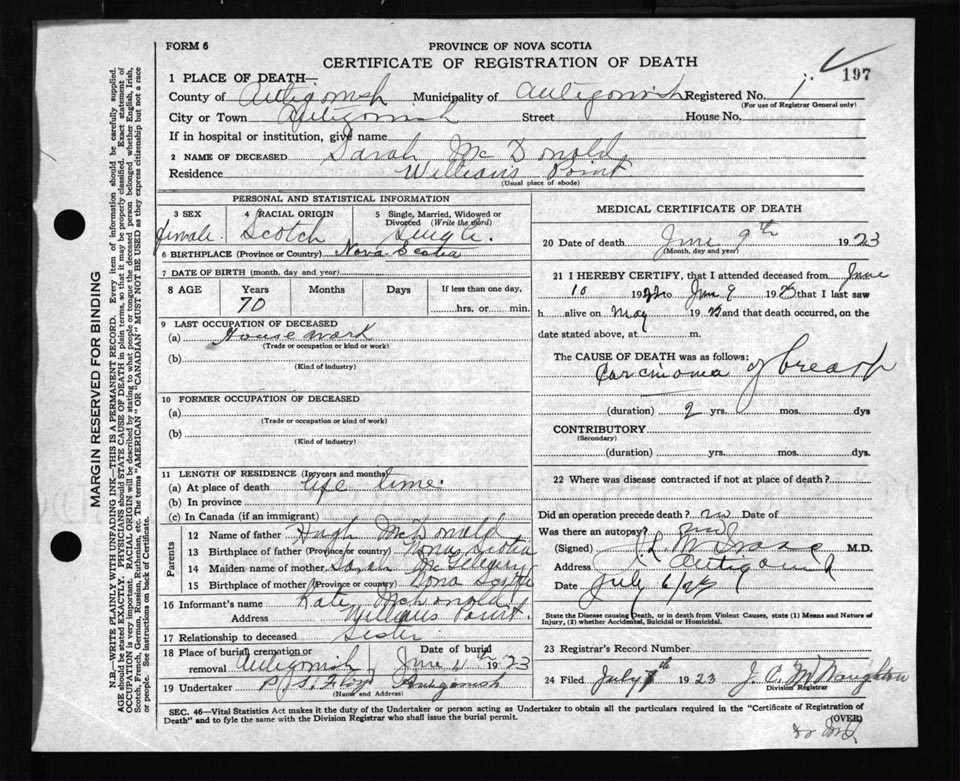 FORM 6
PROVINCE OF NOVA SCOTIA
CERTIFICATE OF REGISTRATION OF DEATH
197
1 PLACE OF DEATH—
County of Antigonish Municipality of Antigonish Registered No. 1
(For use of Registrar General only)
City or Town Antigonish Street House No.
If in hospital or institution, give name
2 NAME OF DECEASED Sarah McDonald
Residence Williams Point
(Usual place of abode)
MARGIN RESERVED FOR BINDING
N.B.—WRITE PLAINLY WITH UNFADING INK—THIS IS A PERMANENT RECORD. Every item of information should be carefully supplied.
AGE should be stated EXACTLY. PHYSICIANS should STATE CAUSE OF DEATH in plain terms, so that it may be properly classified. Exact statement of
OCCUPATION is very important. RACIAL ORIGIN will be described by stating to what people or tongue the deceased person belonged whether English, Irish,
Scotch, French, German, Russian, Ruthenian, etc. The terms "AMERICAN" OR "CANADIAN" MUST NOT BE USED as they express citizenship but not a race
or people. See instructions on back of Certificate.
PERSONAL AND STATISTICAL INFORMATION
3 SEX 4 RACIAL ORIGIN 5 Single, Married, Widowed or
Divorced (Write the word)
female Scotch Single
6 BIRTHPLACE (Province or Country) Nova Scotia
7 DATE OF BIRTH (month, day and year)
8 AGE Years Months Days If less than one day,
70 hrs. or min.
9 LAST OCCUPATION OF DECEASED
(a) House work
(Trade or occupation or kind or work)
(b)
(Kind of industry)
10 FORMER OCCUPATION OF DECEASED
(a)
(Trade or occupation or kind or work)
(b)
(Kind of industry)
11 LENGTH OF RESIDENCE (In years and months)
(a) At place of death life time
(b) In province
(c) In Canada (if an immigrant)
Parents
12 Name of father Hugh McDonald
13 Birthplace of father (Province or country) Nova Scotia
14 Maiden name of mother Sarah
15 Birthplace of mother (Province or country) Nova Scotia
16 Informant's name Kate McDonald
Address Williams Point
17 Relationship to deceased Sister
18 Place of burial cremation or Date of burial
removal Antigonish June 11th 1923
19 Undertaker P. S. Floyd Antigonish
(Name and Address)
MEDICAL CERTIFICATE OF DEATH
20 Date of death June 9th 1923
(Month, day and year)
21 I HEREBY CERTIFY, that I attended deceased from June
10 1922 to June 9 19 that I last saw
h alive on May 19 and that death occurred, on
date stated above, at m.
The CAUSE OF DEATH was as follows:
Carcinoma of breast
(duration) 2 yrs. mos. dys
CONTRIBUTORY
(Secondary)
(duration) yrs. mos. dys.
22 Where was disease contracted if not at place of death?
Did an operation precede death? no Date of
Was there an autopsy?
(Signed) M.D.
Address Antigonish
Date July 6
State the Disease causing Death, or in death from Violent Causes, state (1) Means and Nature of
Injury, (2) whether Accidental, Suicidal or Homicidal.
23 Registrar's Record Number
24 Filed July 7th 1923 J. C. McNaughton
Division Registrar
SEC. 46—Vital Statistics Act makes it the duty of the Undertaker or person acting as Undertaker to obtain all the particulars required in the "Certificate of Registration of
Death" and to fyle the same with the Division Registrar who shall issue the burial permit.
(OVER)